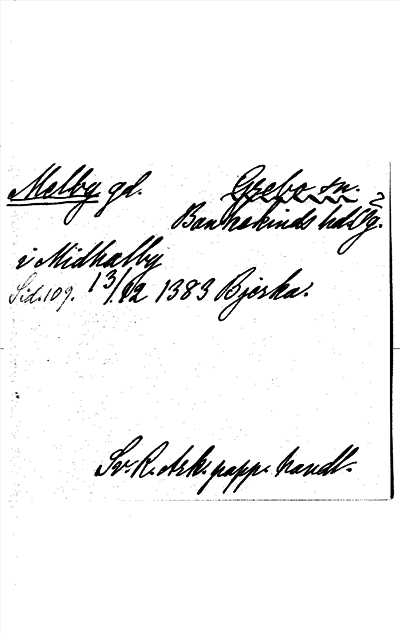 Melby gd. Grebo sn.
Bankekinds hd Ög.
i Midhalby
Sid. 109. 13/12 1383 Bjerka.
Sv. R. Ark. papp. handl.